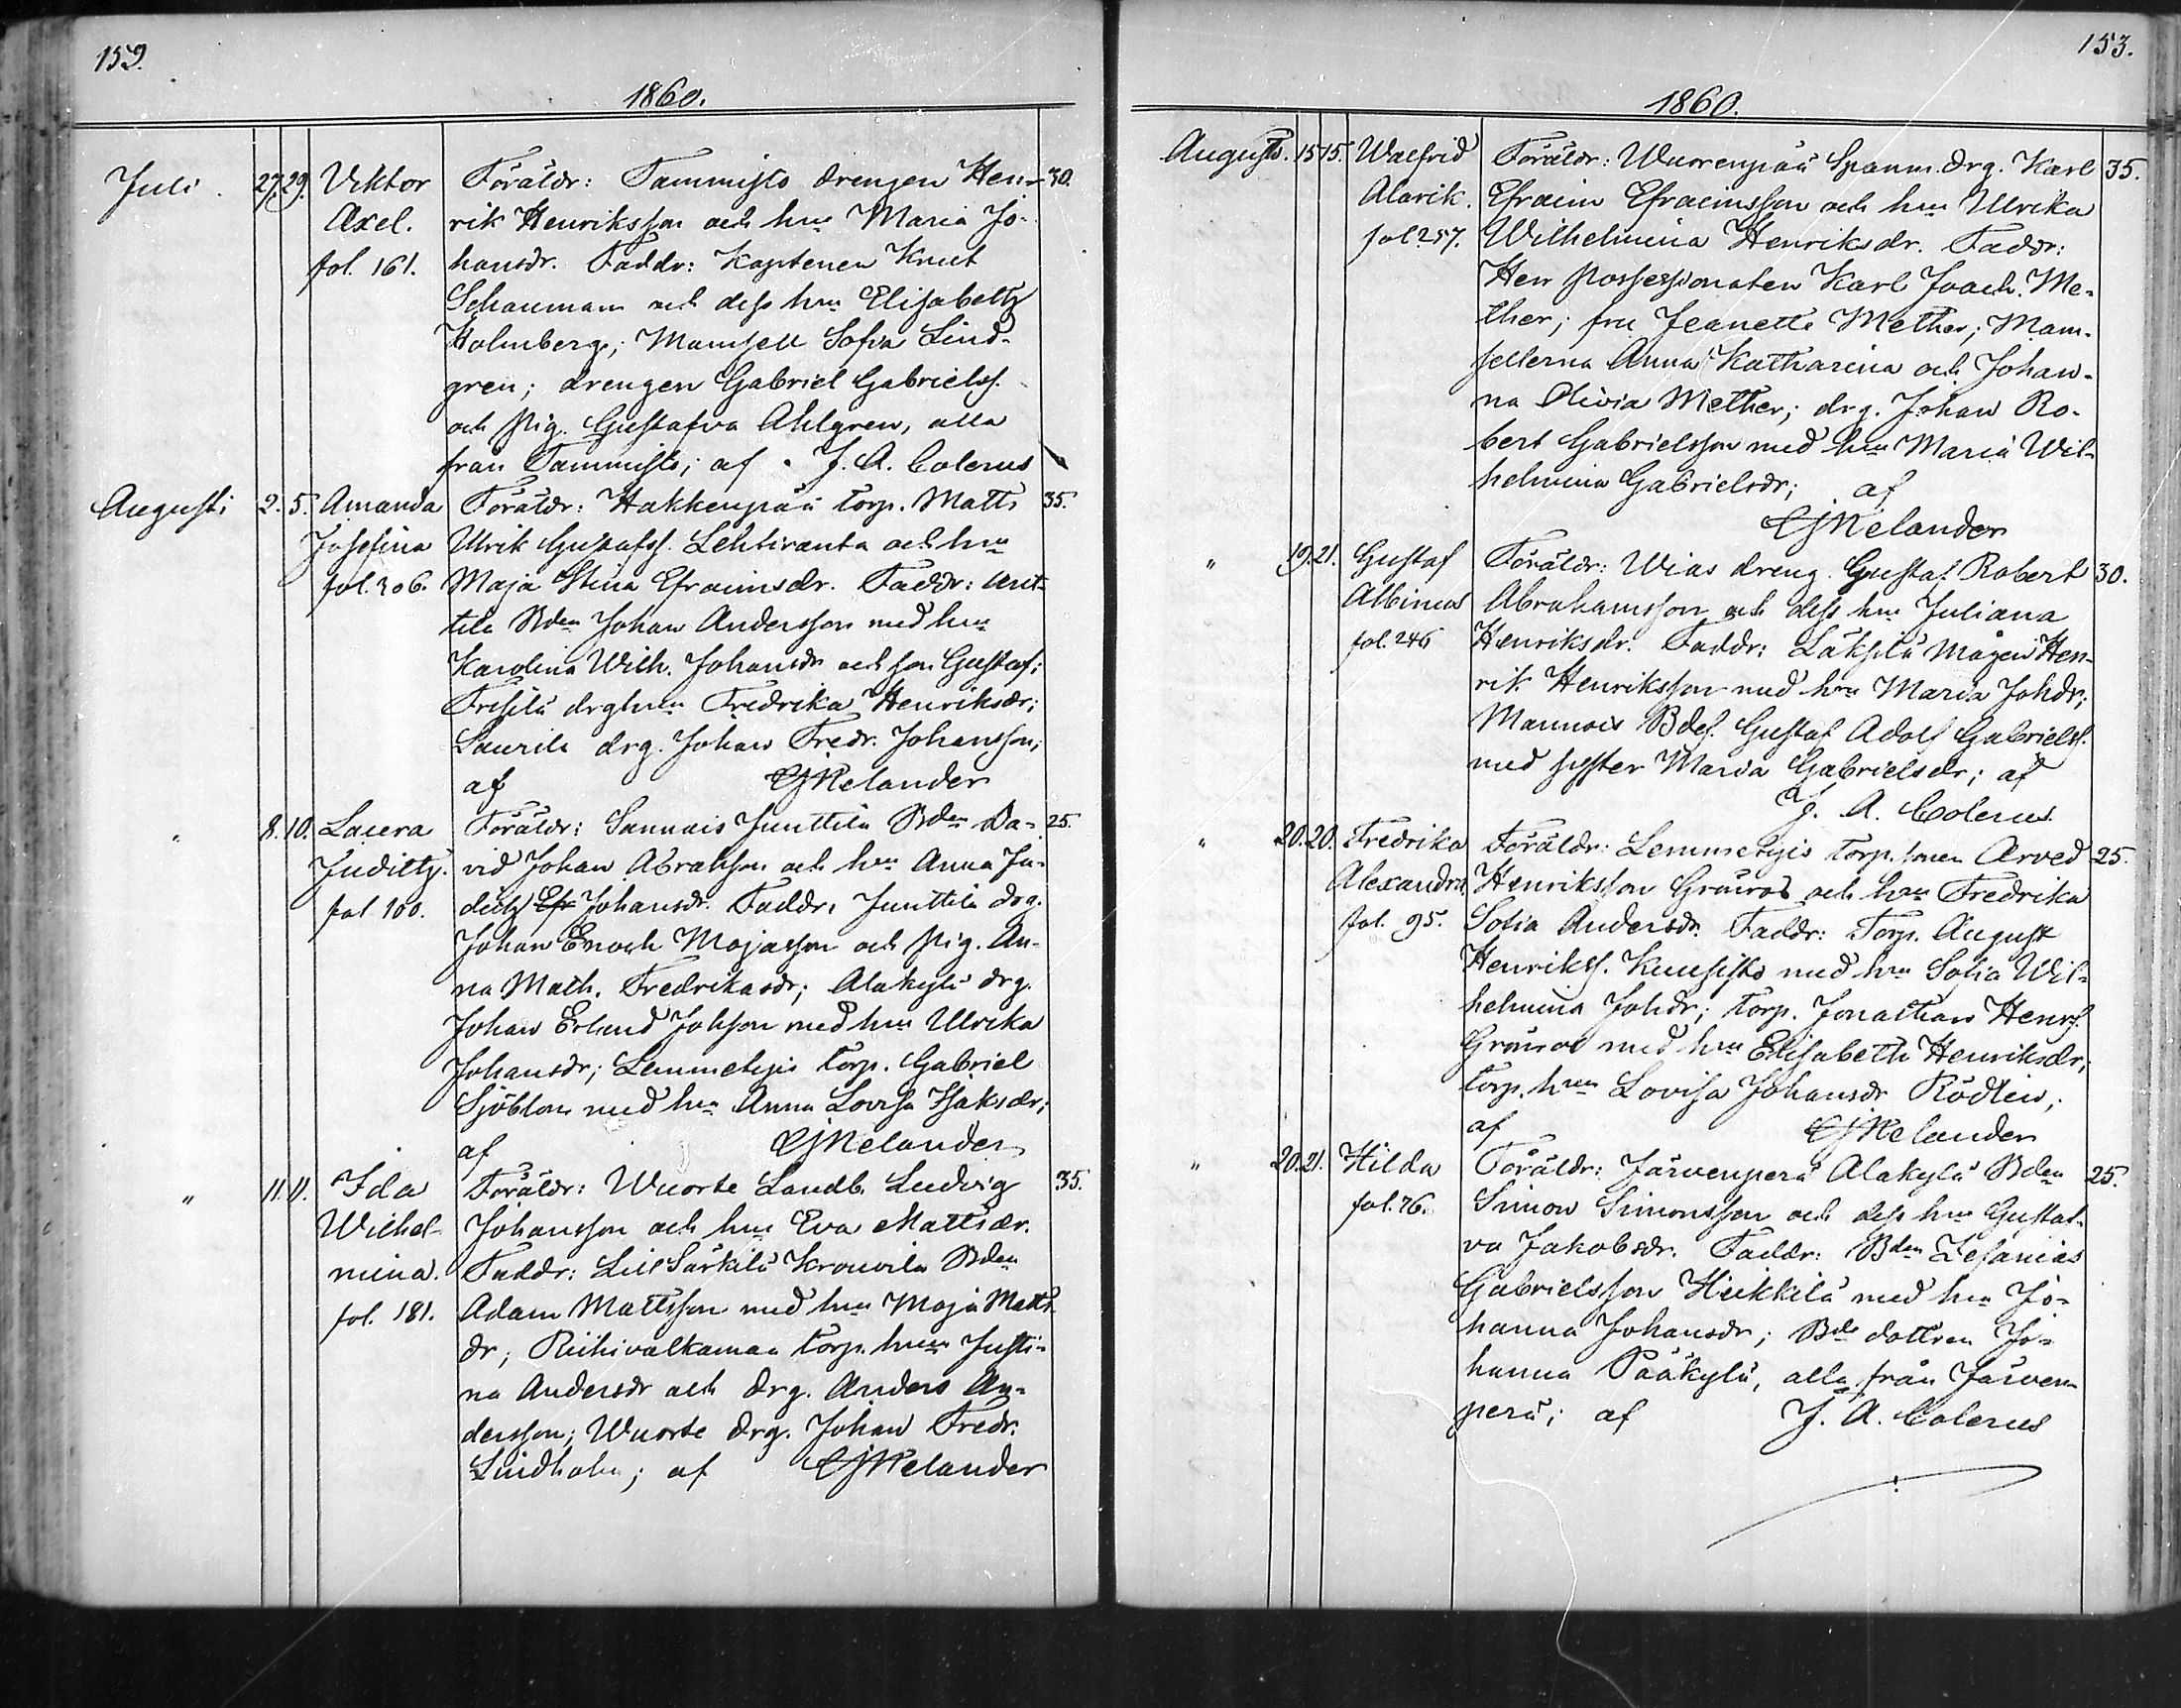 152.
1860.
Juli. 27. 29. Viktor Föräldr: Tammisto drengen Hen- 30.
Axel. rik Henriksson och hru Maria Jo-
fol. 161. hansdr. Faddr: Kaptenen Knut
Schauman och dess hru Elisabeth
Holmberg; Mamsell Sofia Lind-
gren; drengen Gabriel Gabrielss.
och pig. Gustafva Ahlgren, alla
från Tammisto; af J. A. Colerus
Augusti 2. 5. Amanda Föräldr: Hakkenpää torp. Matts 35.
Josefina Ulrik Gustafss. Lehtiranta och hru
fol. 306. Maja Stina Efraimsdr. Faddr: Ant-
tila Bden Johan Andersson med hru
Karolina Wilh. Johansdr och son Gustaf;
drghru Fredrika Henriksdr;
Laurila drg. Johan Fredr. Johansson;
af CJMelander
" 8. 10. Laura Föräldr: Sannais Junttila Bden Da- 25.
Judith. vid Johan Abrahsson och hru Anna Ju-
fol 100. dith Efr Johansdr. Faddr: Junttila drg.
Johan Enoch Majasson och pig. An-
na Math. Fredrikasdr; Alakylä drg.
Johan Erland Johsson med hru Ulrika
Johansdr; Lemmetyis torp. Gabriel
Sjöblom med hru Anna Lovisa Isaksdr;
af CJMelander
" 11. 11. Ida Föräldr: Wuorte Landb. Ludvig 35.
Wilhel- Johansson och hru Eva Mattsdr.
mina. Faddr: Lill Särkilä Krouvila Bden
fol. 181. Adam Mattsson med hru Maja Matts
dr; Riihivalkaman torp. hru Justi-
na Andersdr och drg. Anders An-
dersson; Wuorte drg. Johan Fredr.
Lindholm; af CJMelander
153.
1860.
Augusti. 15 15. Walfrid Föräldr: Wuorenpää Spanm. drg. Karl 35.
Alarik. Efraim Efraimsson och hru Ulrika
fol. 257. Wilhelmina Henriksdr. Faddr:
Herr Possessionaten Karl Joach. Me-
ther; fru Jeanette Mether; Mam-
sellerna Anna Katharina och Johan-
na Olivia Mether; drg. Johan Ro-
bert Gabrielsson med hru Maria Wil-
helmina Gabrielsdr; af
CJMelander
" 19. 21. Gustaf Föräldr: Wias dreng. Gustaf Robert 30.
Albinus Abrahamsson och dess hru Juliana
fol. 246 Henriksdr. Faddr: Läksilä Mågen Hen-
rik Henriksson med hru Maria Johdr;
Mannois Bdes. Gustaf Adolf Gabrielss.
med syster Maria Gabrielsdr; af
J. A. Colerus
" 20. 20. Fredrika Föräldr: Lemmetyis torp. sonen Arved 25.
Alexandra. Henriksson Grönroos och hru Fredrika
fol. 95. Sofia Andersdr. Faddr: Torp. August
Henrikss. Kuusisto med hru Sofia Wil-
helmina Johdr; torp. Jonathan Henrs.
Grönroos med hru Elisabeth Henriksdr;
torp. hru Lovisa Johansdr Rödlin;
af CJMelander
" 20. 21. Hilda Föräldr: Järvenperä Alakylä Bden 25.
fol. 76. Simon Simonsson och dess hru Gustaf-
va Jakobsdr. Faddr: Bden Zefanias
Gabrielsson Heikkilä med hru Jo-
hanna Johansdr; Bde dottren Jo-
hanna Pääkylä, alla från Järven-
perä; af J. A. Colerus